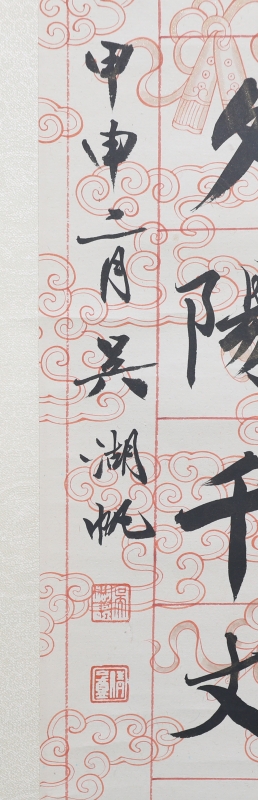 陽千文
甲申二月吳湖帆